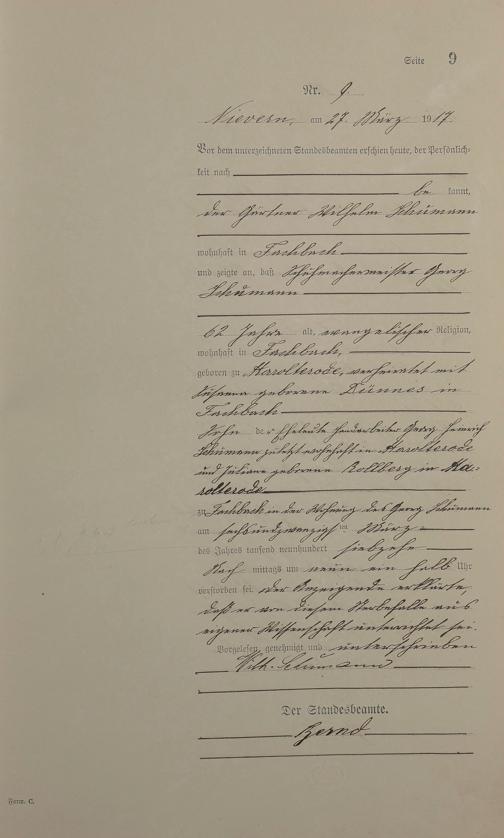 Seite 9
Nr. 9.
Nievern, am 27. März 1917.
Vor dem unterzeichneten Standesbeamten erschien heute, der Persönlich-
keit nach
be kannt,
der Gärtner Wilhelm Schumann
wohnhaft in Fachbach
und zeigte an, daß Schuhmachermeister Georg
Schumann
62 Jahre alt, evangelischer Religion,
wohnhaft in Fachbach,
geboren zu Harolterode, verheiratet mit
Susanna geborene Dünnes in
Fachbach
Sohn der Eheleute Handarbeiter Georg Heinrich
Schumann zuletzt wohnhaft in Harolterode
und Juliane geborene Rollberg in Ha-
rolterode
zu Fachbach in der Wohnung des Georg Schumann
am sechsundzwanzigsten März
des Jahres tausend neunhundert siebzehn
Nach mittags um neun ein halb Uhr
verstorben sei. Der Anzeigende erklärte,
daß er von diesem Sterbefalle aus
eigener Wissenschaft unterrichtet sei.
Vorgelesen, genehmigt und unterschrieben
Wilh. Schumann
Der Standesbeamte.
Bernd
Form. C.